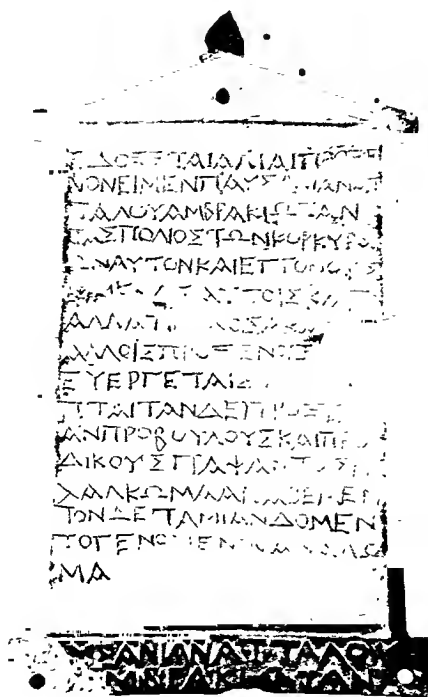 ΕΔΟΞΕΤΑΙΑΛΙΑΙΠΡΟΞΕ
ΝΟΝΕΙΜΕΝΠΑΥΣΑΝΙΑΝΑΤ
ΤΑΛΟΥΑΜΒΡΑΚΙΩΤΑΝ
ΤΑΣΠΟΛΙΟΣΤΩΝΚΟΡΚΥΡΑΙ
ΩΝΑΥΤΟΝΚΑΙΕΓΓΟΝΟΥΣ
ΑΥΤΟΙΣ
ΑΛΛΑΤΙ
ΑΛΛΟΙΣΠΡΟΞΕΝΟΙΣ
ΕΥΕΡΓΕΤΑΙΣ
ΠΤΑΙΤΑΝΔΕΠΡΟΞΕ
ΑΝΠΡΟΒΟΥΛΟΥΣΚΑΙΠΡΟ
ΔΙΚΟΥΣΓΡΑΨΑΝΤΑΣ
ΧΑΛΚΩΜΑΑΝΑΘΕΜΕΝ
ΤΟΝΔΕΤΑΜΙΑΝΔΟΜΕΝ
ΤΟΓΕΝΟΜΕΝΟΝΑΝΑΛΩ
ΜΑ
ΥΣΑΝΙΑΝΑΤΤΑΛΟΥ
ΜΒΡΑΚΙΩΤΑΝ